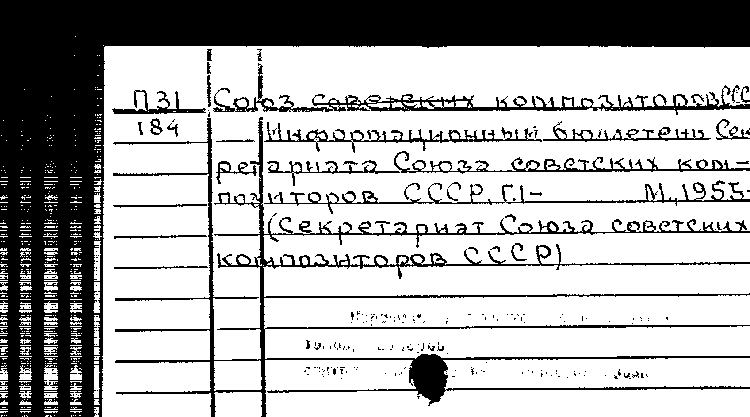 П31 Союз советских композиторов СССР
184 Информационный бюллетень Сек
ретариата Союза советских ком-
позиторов СССР, Г.1- М., 1955-
(Секретариат Союза советских
композиторов СССР)